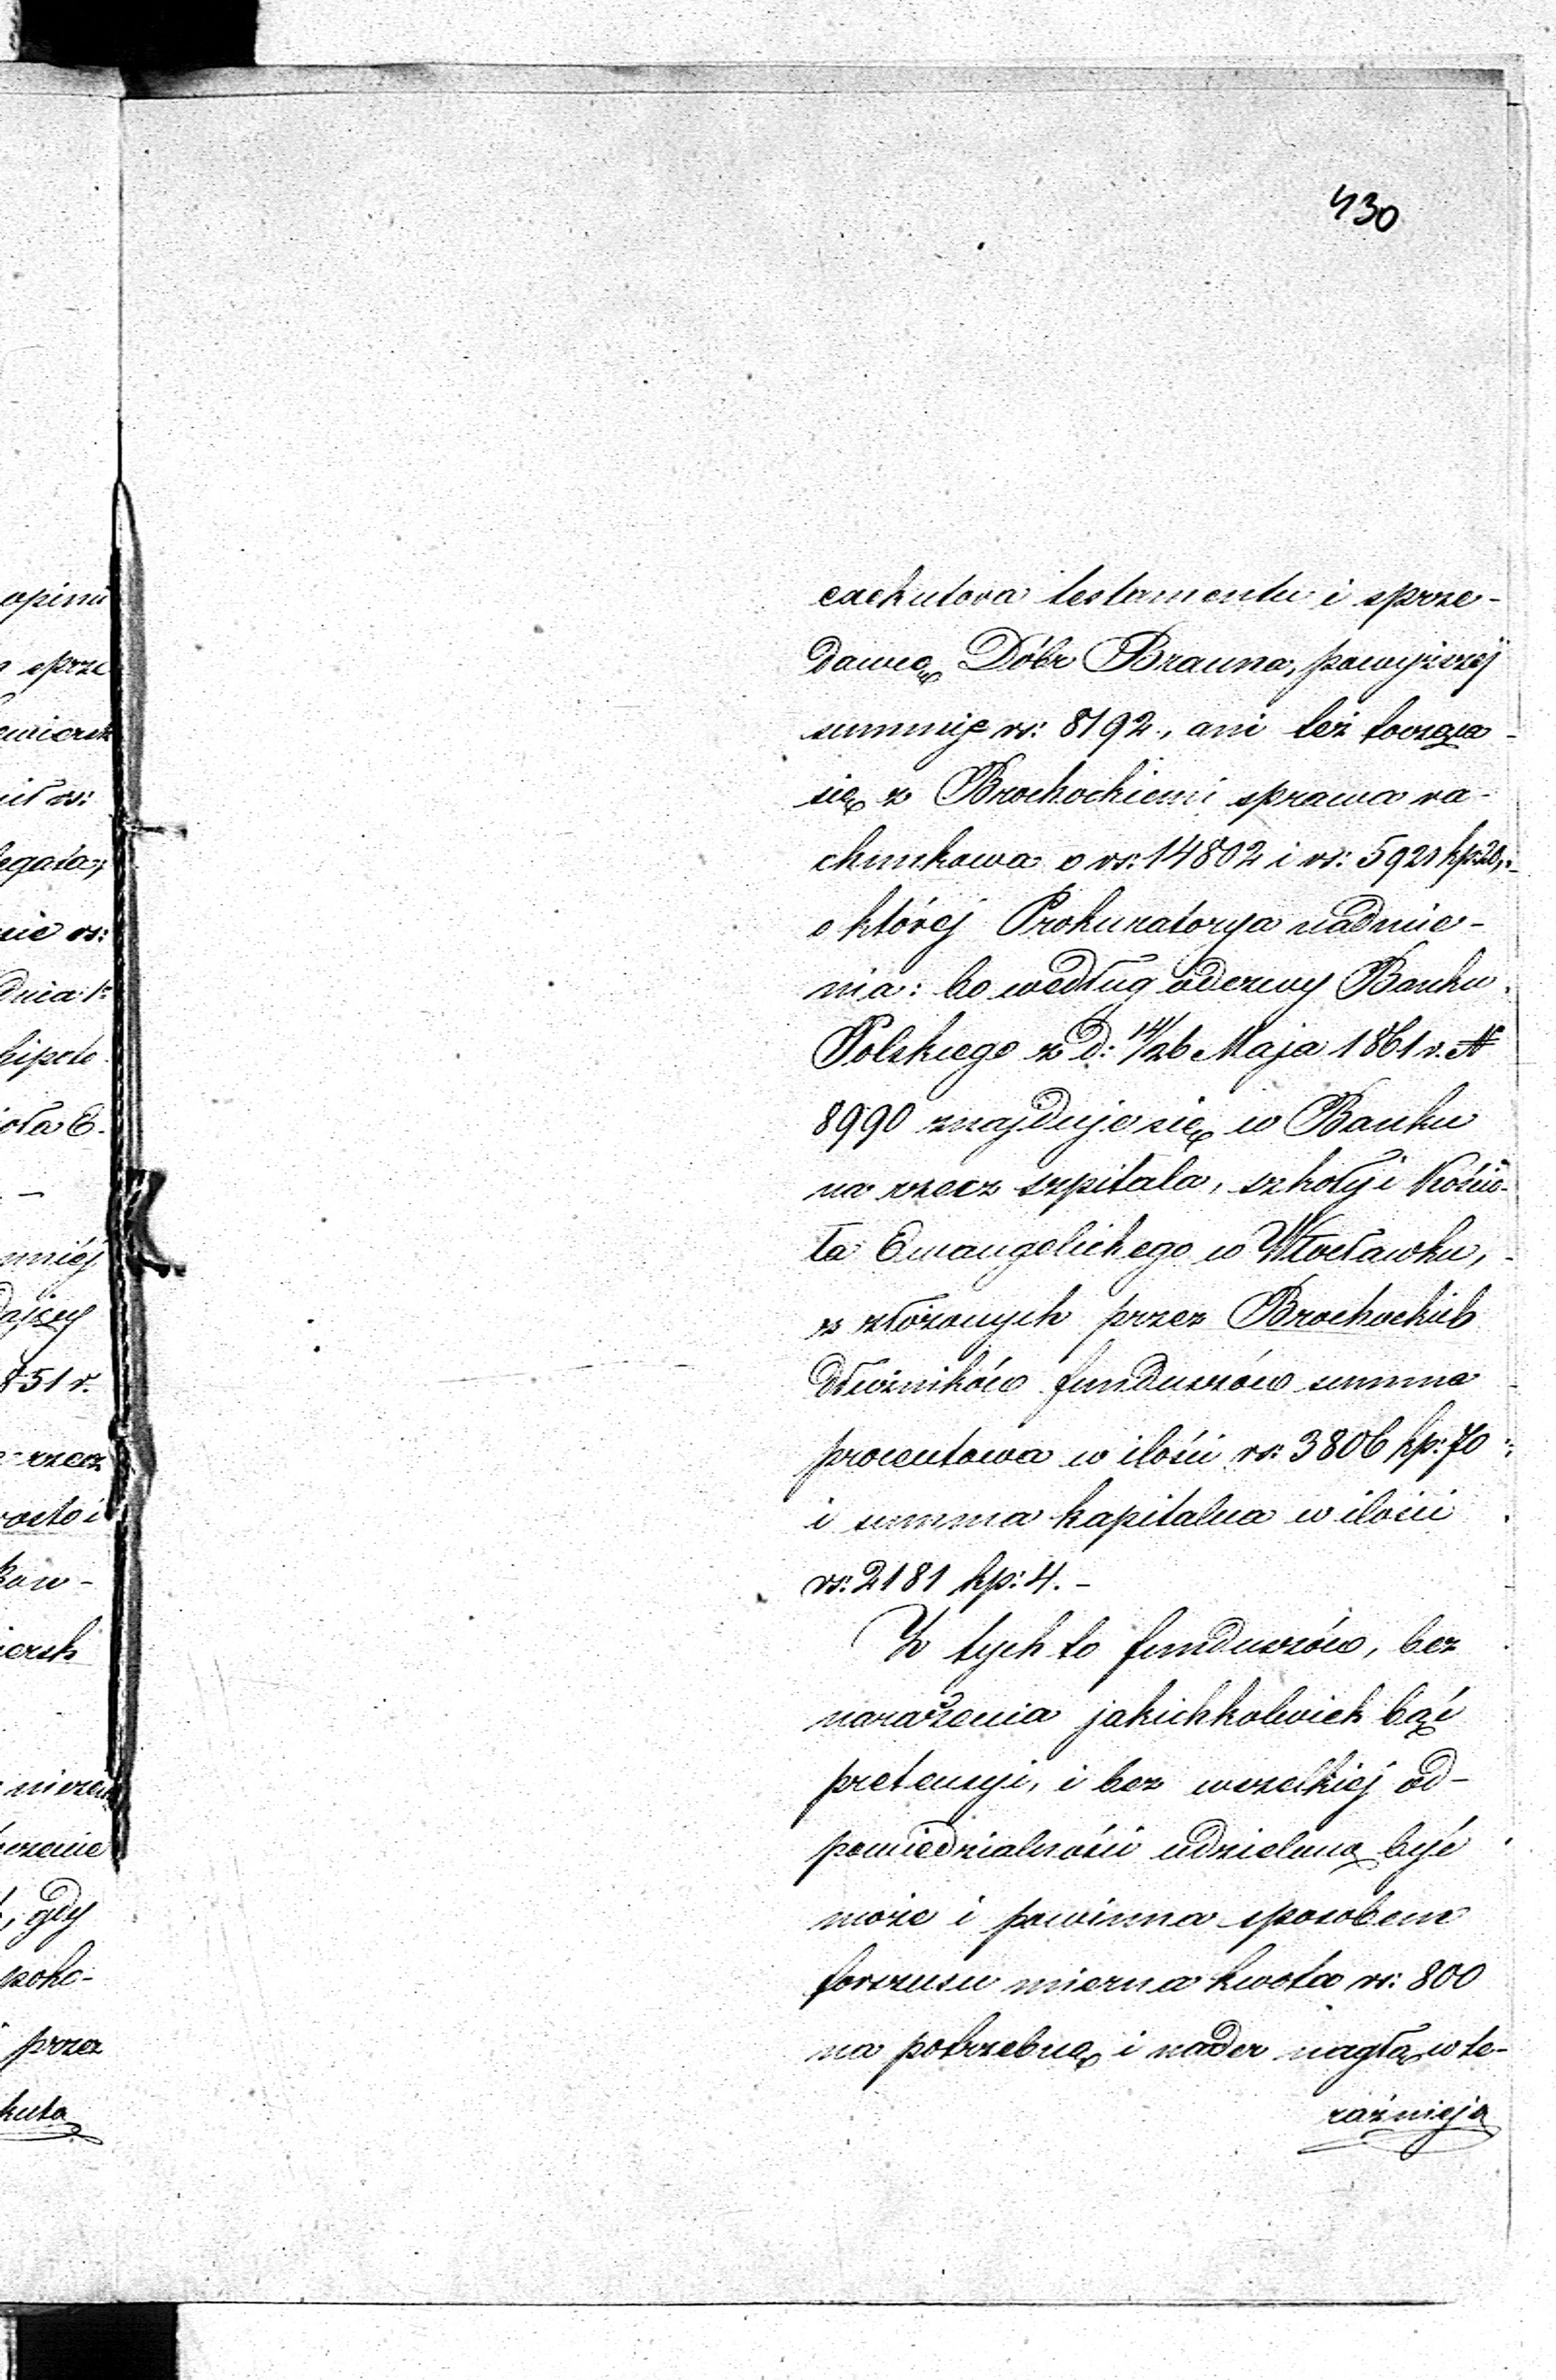 430
opinii
sprze
rs:
legata,
rs:
dnia 1º
hipote
mniéj
851 r.
rzecz
gdy
przez
kuta
exekutora testamentu i sprze-
dawcą Dóbr Brauna, powyższéj
summie rs: 8192., ani też tocząca
się z Brochockiemi sprawa ra-
chunkowa o rs: 14802 i rs: 5921 kp: 20,
o któréj Prokuratorya nadmie-
nia: bo według odezwy Banku
Polskiego z d: 14/26 Maja 1861 r. N
8990 znajduje się w Banku
na rzecz szpitala, szkoły i Kościo-
ła Ewangelickego w Włocławku,
z złożonych przez Brochockich
dłużników funduszów summa
procentowa w ilości rs: 3806 kp: 70
i summa kapitalna w ilości
rs: 2181 kp: 4. -
Z tych to funduszów, bez
narażenia jakichkolwiek bąć
pretensyi, i bez wszelkiéj od-
powiedzialności udzieloną być
może i powinna sposobem
forszusu mierna kwota rs: 800
na potrzebną i nader nagłą w te-
raźniejs